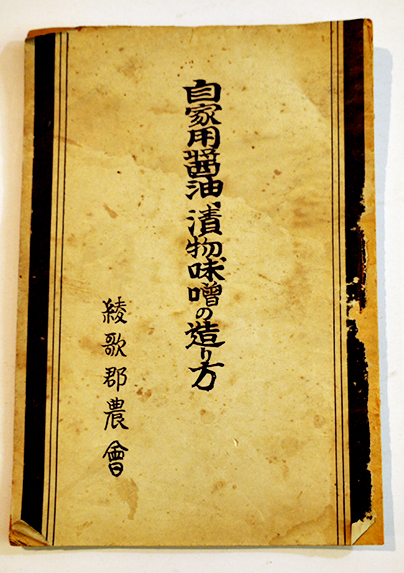 自家用醤油、漬物、味噌の造り方
綾歌郡農會